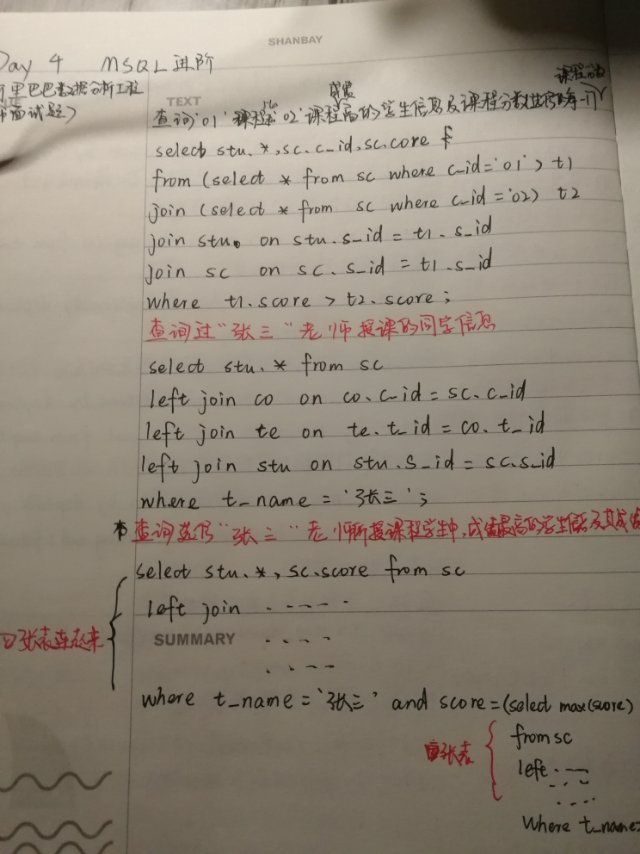 SHANBAY
Day 4 MSQL进阶
阿里巴巴数据分析工程
师面试题)
TEXT
成绩
课程分数
查询'01'课程比'02'课程高的学生信息及课程分数
select stu.*,sc.c_id,sc.score f
from (select * from sc where c_id='01') t1
join (select * from sc where c_id='02) t2
join stu. on stu.s_id = t1.s_id
join sc on sc.s_id = t1.s_id
where t1.score > t2.score;
查询过"张三"老师授课的同学信息
select stu.* from sc
left join co on co.c_id=sc.c_id
left join te on te.t_id=co.t_id
left join stu on stu.s_id=sc.s_id
where t_name='张三';
查询选修"张三"老师所授课程学生中,成绩最高的学生信息及其成绩
select stu.*,sc.score from sc
left join .....
张表连起来
SUMMARY ....
....
where t_name='张三' and score=(select max(score)
张表
from sc
left ...
...
...
where t_name=